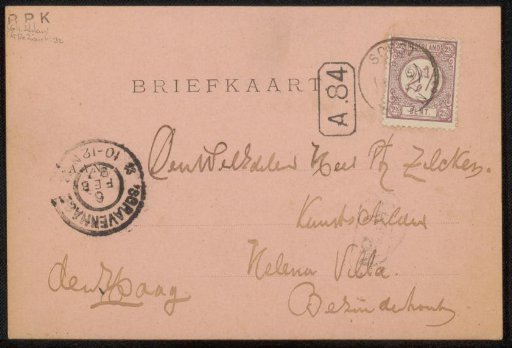 RPK
BRIEFKAART
A.84
NEDERLAND
CENT
'S GRAVENHAGE
10-12
6
FEB
Den WelEdelen Heer Ph Zilcken.
Kunstschilder
Helena Villa.
Bezuidenhout
den Haag